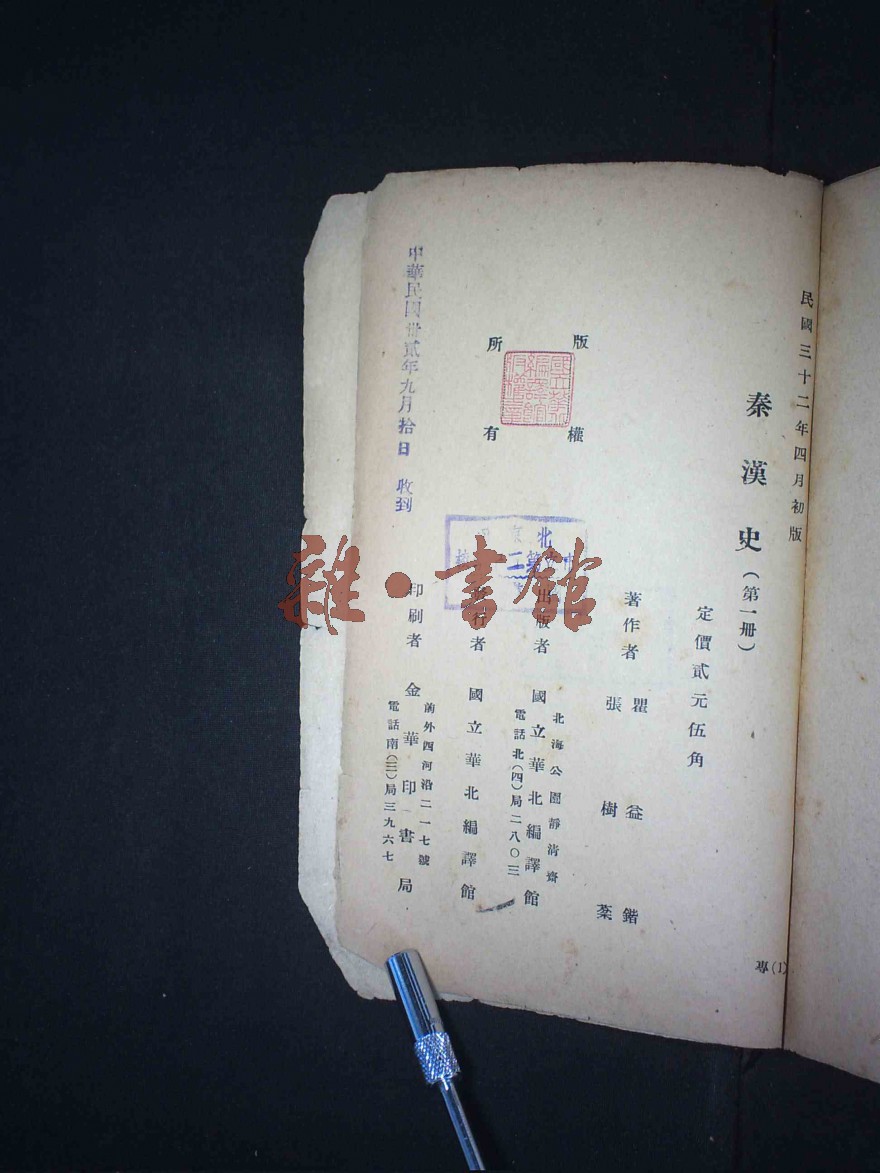 民國三十二年四月初版
秦漢史（第一冊）
定價貳元伍角
著作者 瞿益鍇
張樹棻
版權所有
出版者 國立華北編譯館
北海公園靜清齋
電話北(四)局二八〇三
發行者 國立華北編譯館
印刷者 金華印書局
前外西河沿二一七號
電話南(三)局三九六七
專(1)
中華民國卅貳年九月拾日 收到
北
第二
雜·書館